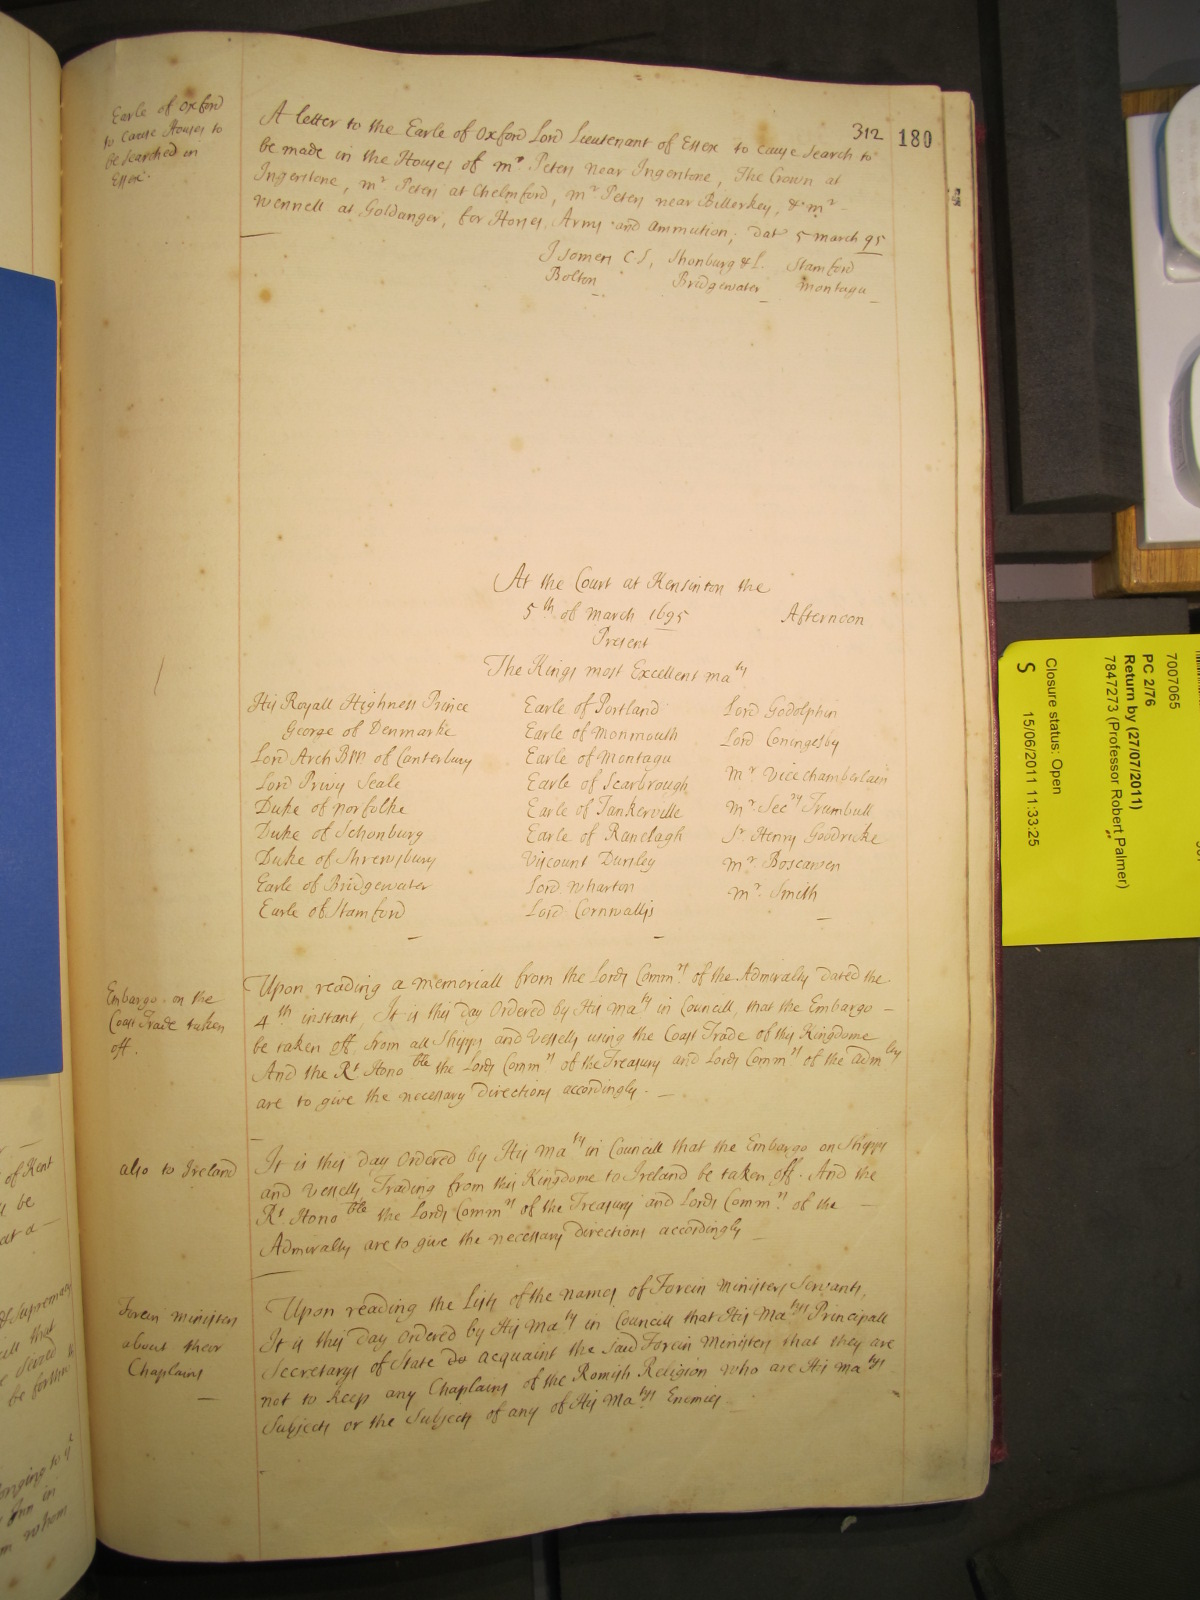 312 180
Earle of Oxford
to cause Houses to
be Searched in
Essex.
A letter to the Earle of Oxford Lord Lieutenant of Essex to cause Search to
be made in the Houses of mr. Peters near Ingerstone, The Crown at
Ingerstone, mr. Peters at Chelmsford, mr Peters near Billerkey, & mr -
wennell at Goldanger, for Horses, Arms and Ammution; dat 5 march 95
J Somers C.S, Shonburg & L. Stamford
Bolton Bridgewater montagu
At the Court at Kensinton the
5th of march 1695 Afternoon
Present
The Kings most Excellent maty
His Royall Highness Prince
George of Denmarke
Lord Arch Bpp of Canterbury
Lord Privy Seale
Duke of norfolke
Duke of Schonburg
Duke of Shrewsbury
Earle of Bridgewater
Earle of Stamford
Earle of Portland
Earle of Monmouth
Earle of Montagu
Earle of Scarbrough
Earle of Tankerville
Earle of Ranelagh
Viscount Dursley
Lord Wharton
Lord Cornwallis
Lord Godolphin
Lord Coningesby
mr. Vicechamberlain
mr. Secry Trumbull
Sr. Henry Goodricke
mr. Boscawen
mr. Smith
Embargo on the
Coast Trade taken
off.
Upon reading a memoriall from the Lords Commrs. of the Admiralty Dated the
4th instant, It is this day Ordered by His maty in Councill, that the Embargo -
be taken off from all Shipps and Vessells using the Coast Trade of this Kingdome
And the Rt. Honoble the Lords Commrs of the Treasury and Lords Commrs of the Admlty
are to give the necessary Directions accordingly. -
also to Ireland
It is this day Ordered by His maty in Councill that the Embargo on Shipps
and Vessells Trading from this Kingdome to Ireland be taken off. And the
Rt. Honoble the Lords Commrs of the Treasury and Lords Commrs. of the -
Admiralty are to give the necessary Directions accordingly
Forein ministers
about their
Chaplains
Upon reading the Lists of the names of Forein ministers Servants,
It is this day Ordered by His Maty in Councill that His Matys Principall
Secretarys of State do acquaint the said Forein Ministers that they are
not to keep any Chaplains of the Romish Religion who are His Matys
Subjects or the Subjects of any of His Matys Enemies.
of Kent
be
at a -
Supremacy
that
be forthw
onging to yt
Inn in
whom
7007065
PC 2/76
Return by (27/07/2011)
7847273 (Professor Robert Palmer)
Closure status: Open
S 15/06/2011 11:33:25